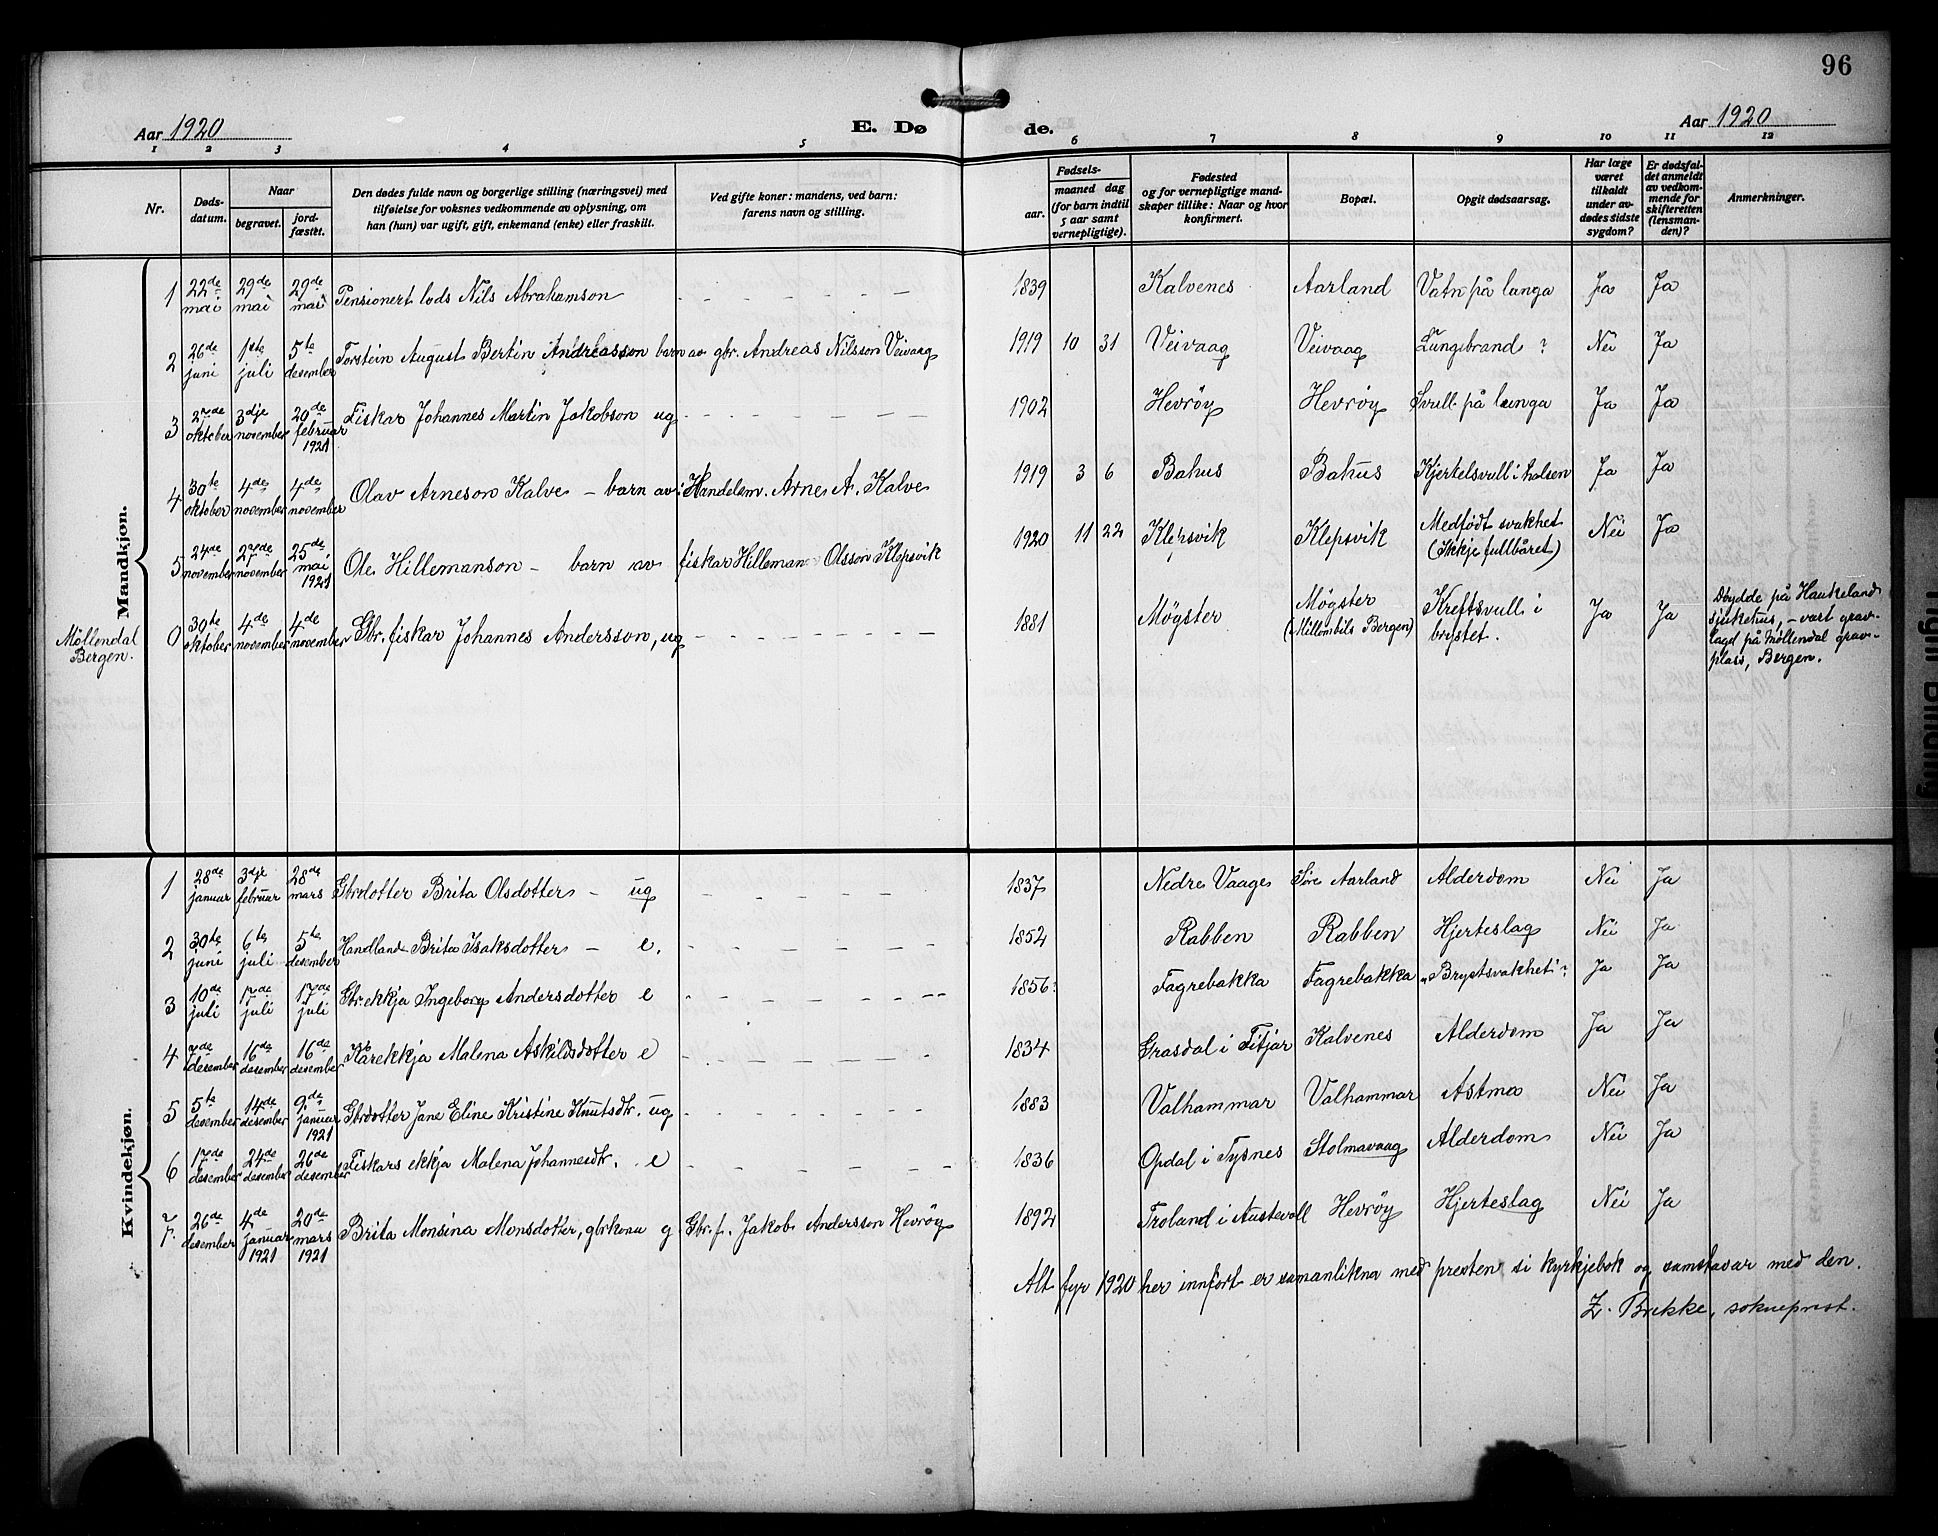 96
Aar 1920 E. Dø de. Aar 1920
1 2 3 4 5 6 7 8 9 10 11 12
Nr.
Døds-
datum.
Naar
begravet.
jord-
fæstet.
Den dødes fulde navn og borgerlige stilling (næringsvei) med
tilføielse for voksnes vedkommende av oplysning, om
han (hun) var ugift, gift, enkemand (enke) eller fraskilt.
Ved gifte koner: mandens, ved barn:
farens navn og stilling.
Fødsels-
aar.
maaned dag
(for barn indtil
5 aar samt
vernepligtige).
Fødested
og for vernepligtige mand-
skaper tillike: Naar og hvor
konfirmert.
Bopæl.
Opgit dødsaarsag.
Har læge
været
tilkaldt
under av-
dødes sidste
sygdom?
Er dødsfal-
det anmeldt
av vedkom-
mende for
skifteretten
(lensman-
den)?
Anmerkninger.
Mandkjøn.
1 22de mai 29de mai 29de mai Pensionert lods Nils Abrahamson 1839 Kalvenes Aarland Vatn på lunga Ja Ja
2 26de juni 1ste juli 5te desember Torstein August Bertin Andreasson barn av gbr. Andreas Nilsson Veivaag 1919 10 31 Veivaag Veivaag Lungebrand? Nei Ja
3 27de oktober 3dje november 20de februar 1921 Fiskar Johannes Martin Jakobson ug 1902 Hevrøy Hevrøy Svull på lunga Ja Ja
4 30te oktober 4de november 4de november Olav Arneson Kalve – barn av: Handelsm. Arne A. Kalve 1919 3 6 Bakus Bakus Kjertelsvull i halsen Ja Ja
5 24de november 27de november 25de mai 1921 Ole Hillemanson – barn av fiskar Hilleman Olsson Klepsvik 1920 11 22 Klepsvik Klepsvik Medfødt svakhet (Ikkje fullbåret) Nei Ja
Møllendal
Bergen.
0 30te oktober 4de november 4de november Gbr. fiskar Johannes Andersson, ug 1881 Møgster Møgster (Millombils Bergen) Kreftsvull i brystet. Ja Ja
Døydde på Haukeland
sjukehus, – vart grav-
lagd på Møllendal grav-
plass, Bergen.
Kvindekjøn.
1 28de januar 3dje februar 28de mars Gbrdotter Brita Olsdotter – ug 1837 Nedre Vaage Søre Aarland Alderdom Nei Ja
2 30te juni 6te juli 5te desember Handland Brita Isaksdotter – e. 1852 Rabben Rabben Hjerteslag Nei Ja
3 10de juli 17de juli 17de juli Gbr.ekkja Ingeborg Andersdotter e 1856? Fagrebakka Fagrebakka "Brystsvakheti"? Ja Ja
4 7de desember 16de desember 16de desember Kårekkja Malena Askildsdotter e 1834 Grasdal i Fitjar Kalvenes Alderdom Ja Ja
5 5te desember 14de desember 9de januar 1921 Gbrdotter Jane Eline Kristine Knutsdtr. ug 1883 Valhammar Valhammar Astma Nei Ja
6 17de desember 24de desember 26de desember Fiskars ekkja Malena Johannesdtr. e 1836 Opdal i Tysnes Stolmavaag Alderdom Nei Ja
7. 26de desember 4de januar 1921 20de mars 1921 Brita Monsina Monsdotter, gbrkona g. Gbr. f. Jakob Andersson Hevrøy 1892 Troland i Austevoll Hevrøy Hjerteslag Nei Ja
Alt fyr 1920 her innført er samanlikna med presten si kyrkjebok og samstavar med den.
Z. Brekke, sokneprest.